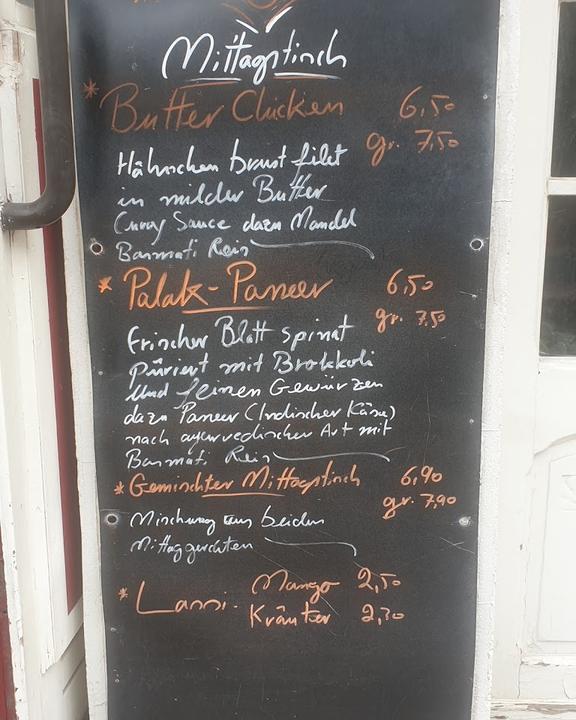 Mittagstisch
* Butter Chicken 6,50
gr. 7,50
Hähnchen brust filet
in milder Butter
Curry Sauce dazu Mandel
Basmati Reis
* Palak-Paneer 6,50
gr. 7,50
Frischer Blatt spinat
püriert mit Brokkoli
und feinen Gewürzen
dazu Paneer (Indischer Käse)
nach ayurvedischer Art mit
Basmati Reis
* Gemischter Mittagstisch 6,90
gr. 7,90
Mischung aus beiden
Mittaggerichten
* Lassi- Mango 2,50
Kräuter 2,30